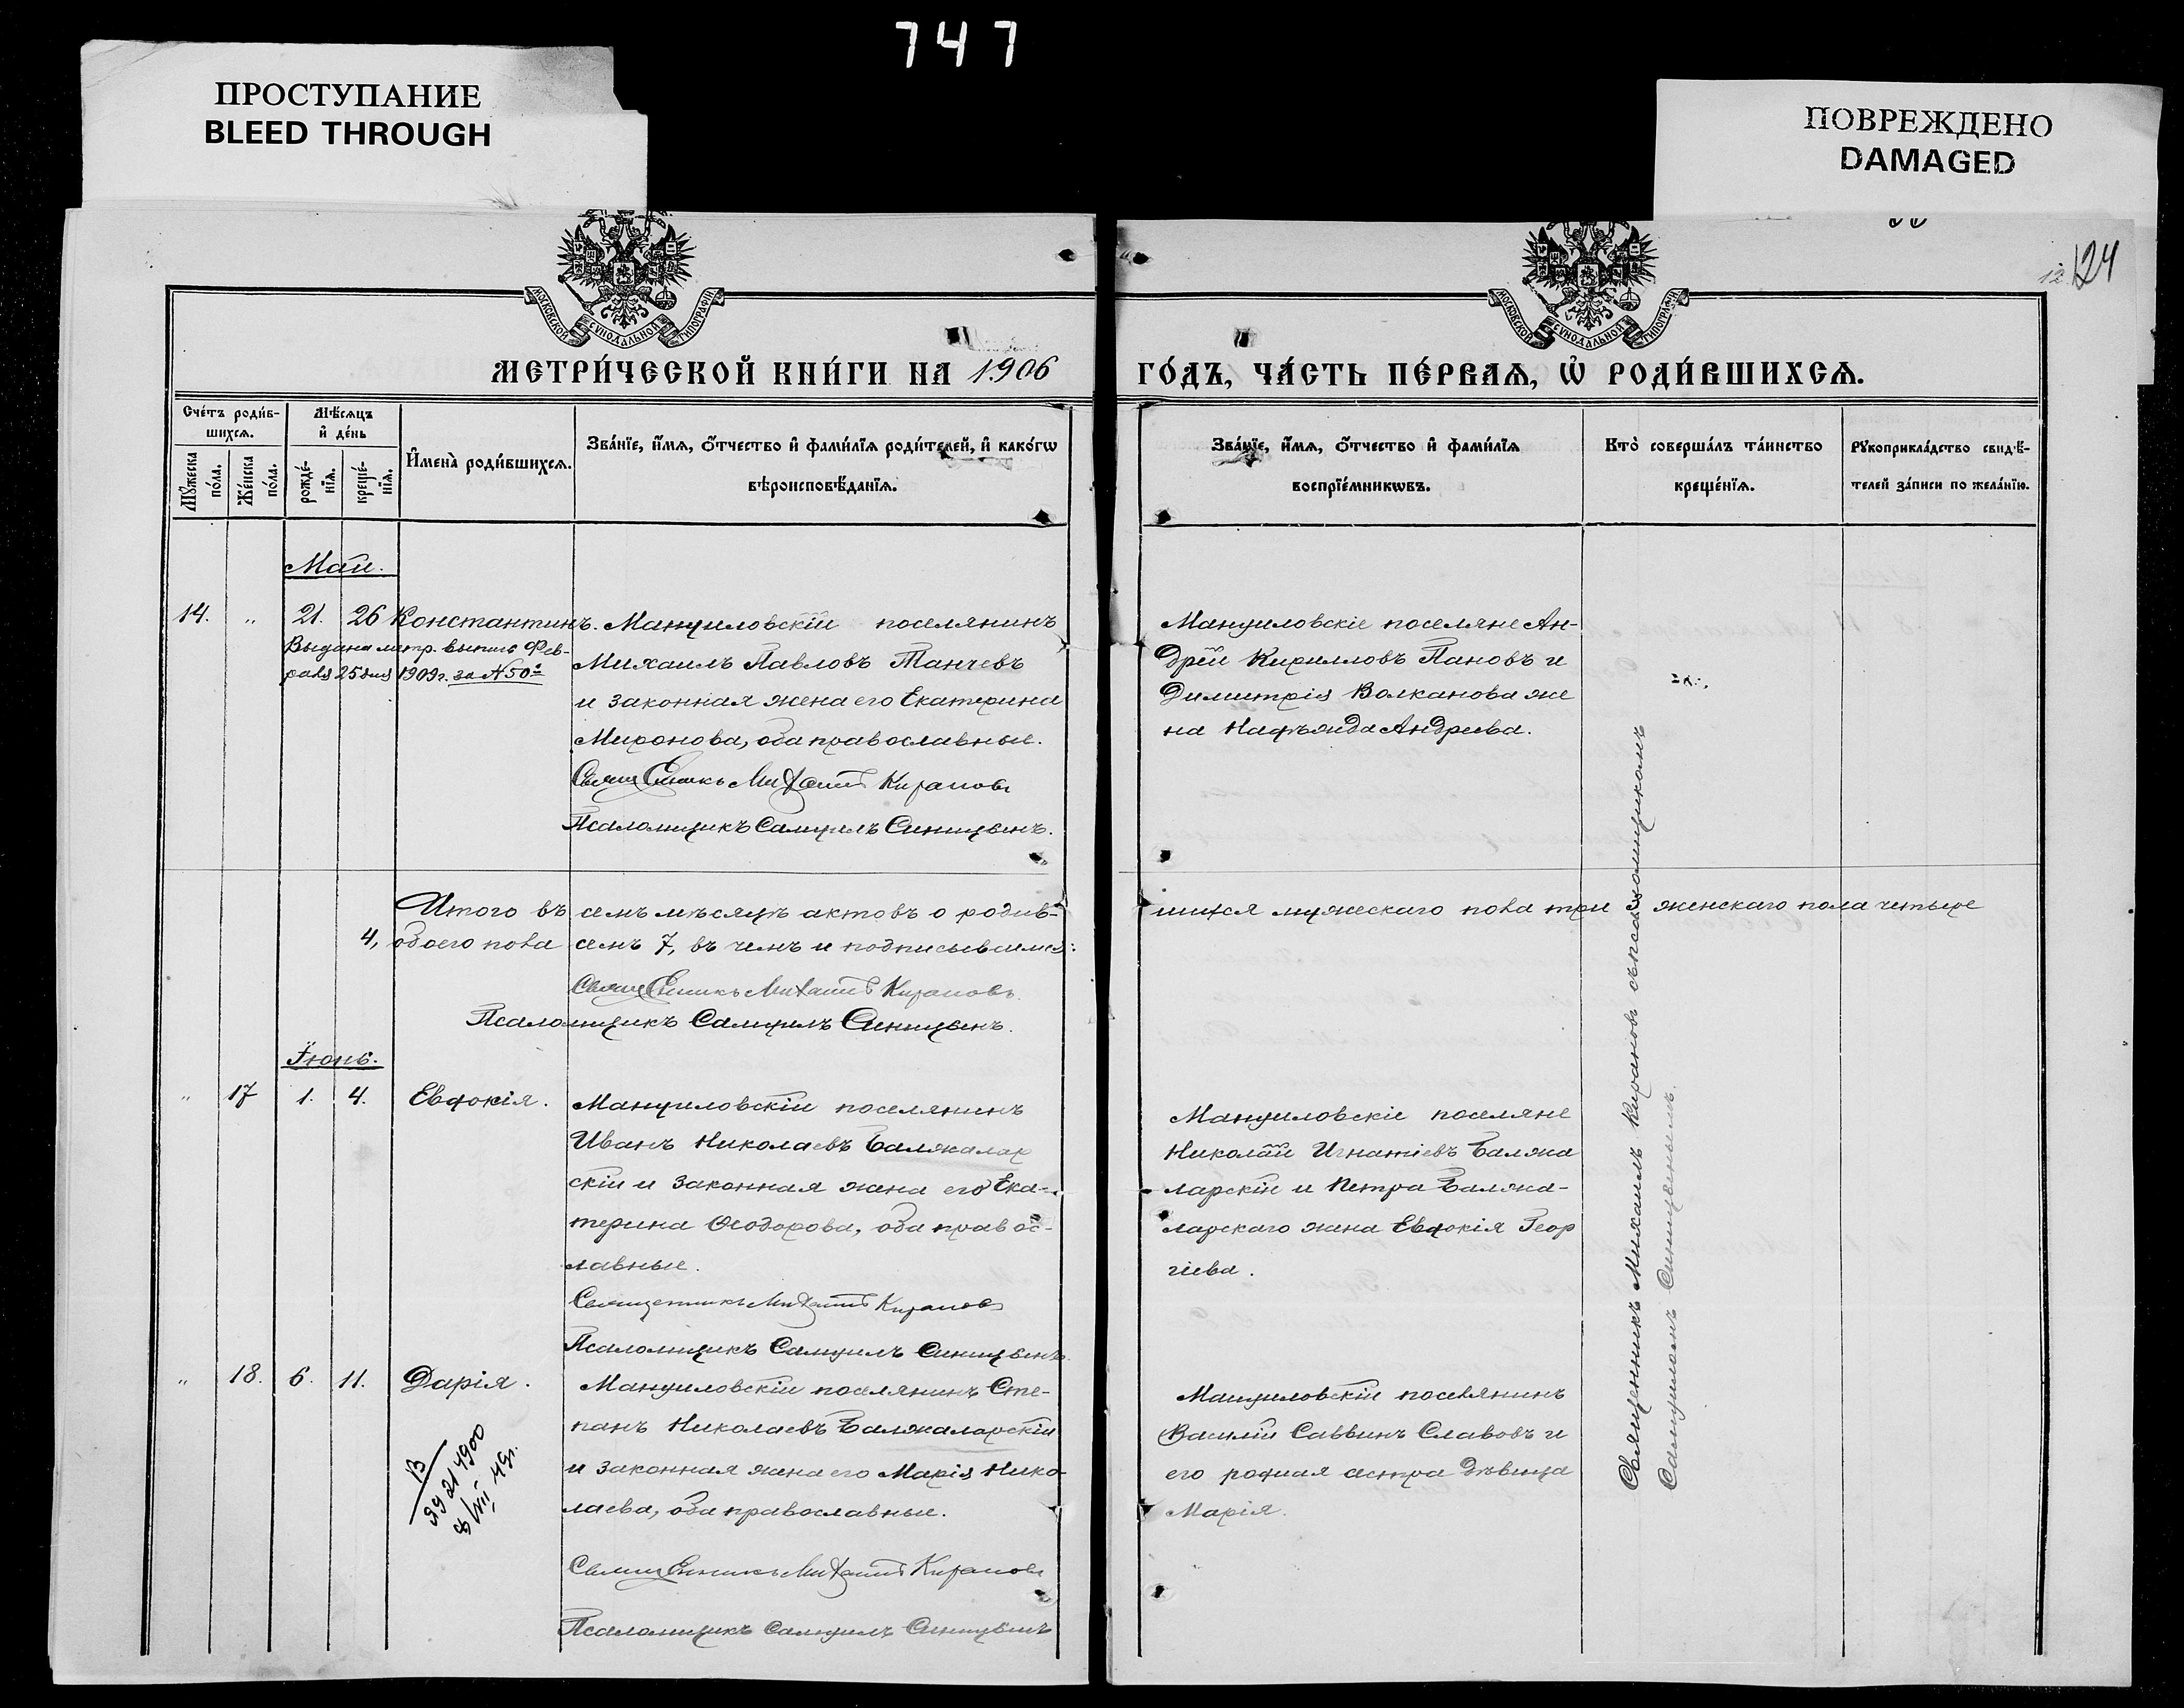 747
ПРОСТУПАНИЕ
BLEED THROUGH
ПОВРЕЖДЕНО
DAMAGED
124
МОСКОВСКОЙ СУНОДАЛЬНОЙ ТИПОГРАФІИ
МОСКОВСКОЙ СУНОДАЛЬНОЙ ТИПОГРАФІИ
МЕТРИ́ЧЕСКОЙ КНИ́ГИ НА 1906
ГО́ДЪ, ЧА́СТЬ ПЕ́РВАѦ, Ѽ РОДИ́ВШИХСѦ.
Сче́тъ роди́в-
шихсѧ.
Мѣ́сѧцъ
и҆ де́нь
Мꙋ́жеска по́ла.
Же́нска по́ла.
рожде́-
нїѧ.
креще́-
нїѧ.
И҆мена̀ роди́вшихсѧ.
Зва́нїе, и҆́мѧ, ѻ҆́тчество и҆ фами́лїѧ роди́телей, и҆ како́гѡ
вѣроисповѣ́данїѧ.
Зва́нїе, и҆́мѧ, ѻ҆́тчество и҆ фами́лїѧ
воспрїе́мникѡвъ.
Кто̀ соверша́лъ та́инство
креще́нїѧ.
Рꙋкоприкла́дство свидѣ́-
телей за́писи по жела́нїю.
Май.
14. " 21. 26 Константинъ.
Выдана метр. выпись Фев-
раля 25 дня 1909 г. за № 50
Мануиловскій поселянинъ
Михаилъ Павловъ Танчевъ
и законная жена его Екатерина
Миронова, оба православные.
Священникъ Михаилъ Кирановъ
Псаломщикъ Самуилъ Синицвинъ.
Мануиловскіе поселяне Ан-
дрей Кирилловъ Пановъ и
Димитрія Волканова же
на Андреева.
Итого въ семъ мѣсяцѣ актовъ о родив-
шихся мужескаго пола три 3 женскаго пола четыре
4, обоего пола семь 7, въ чемъ и подписываемся:
Священникъ Михаилъ Кирановъ
Псаломщикъ Самуилъ Синицвинъ.
Іюнь.
" 17 1. 4. Евдокія.
Мануиловскій поселянинъ
Иванъ Николаевъ Балжалар
скій и законная жена его Ека-
терина Ѳеодорова, оба правос-
лавные.
Священникъ Михаилъ Кирановъ
Псаломщикъ Самуилъ Синицвинъ.
Мануиловскіе поселяне
Николай Игнатіевъ Балжа
ларскій и Петра Балжа-
ларскаго жена Евдокія Геор
гіева.
" 18. 6. 11. Дарія.
Мануиловскій поселянинъ Сте-
панъ Николаевъ Балжаларскій
и законная жена его Марія Нико-
лаева, оба православные.
Священникъ Михаилъ Кирановъ
Псаломщикъ Самуилъ Синицвинъ
Мануиловскій поселянинъ
Василій Саввинъ Славовъ и
его родная сестра дѣвица
Марія.
Священникъ Михаилъ Кирановъ съ псаломщикомъ
Самуиломъ Синицвинымъ.